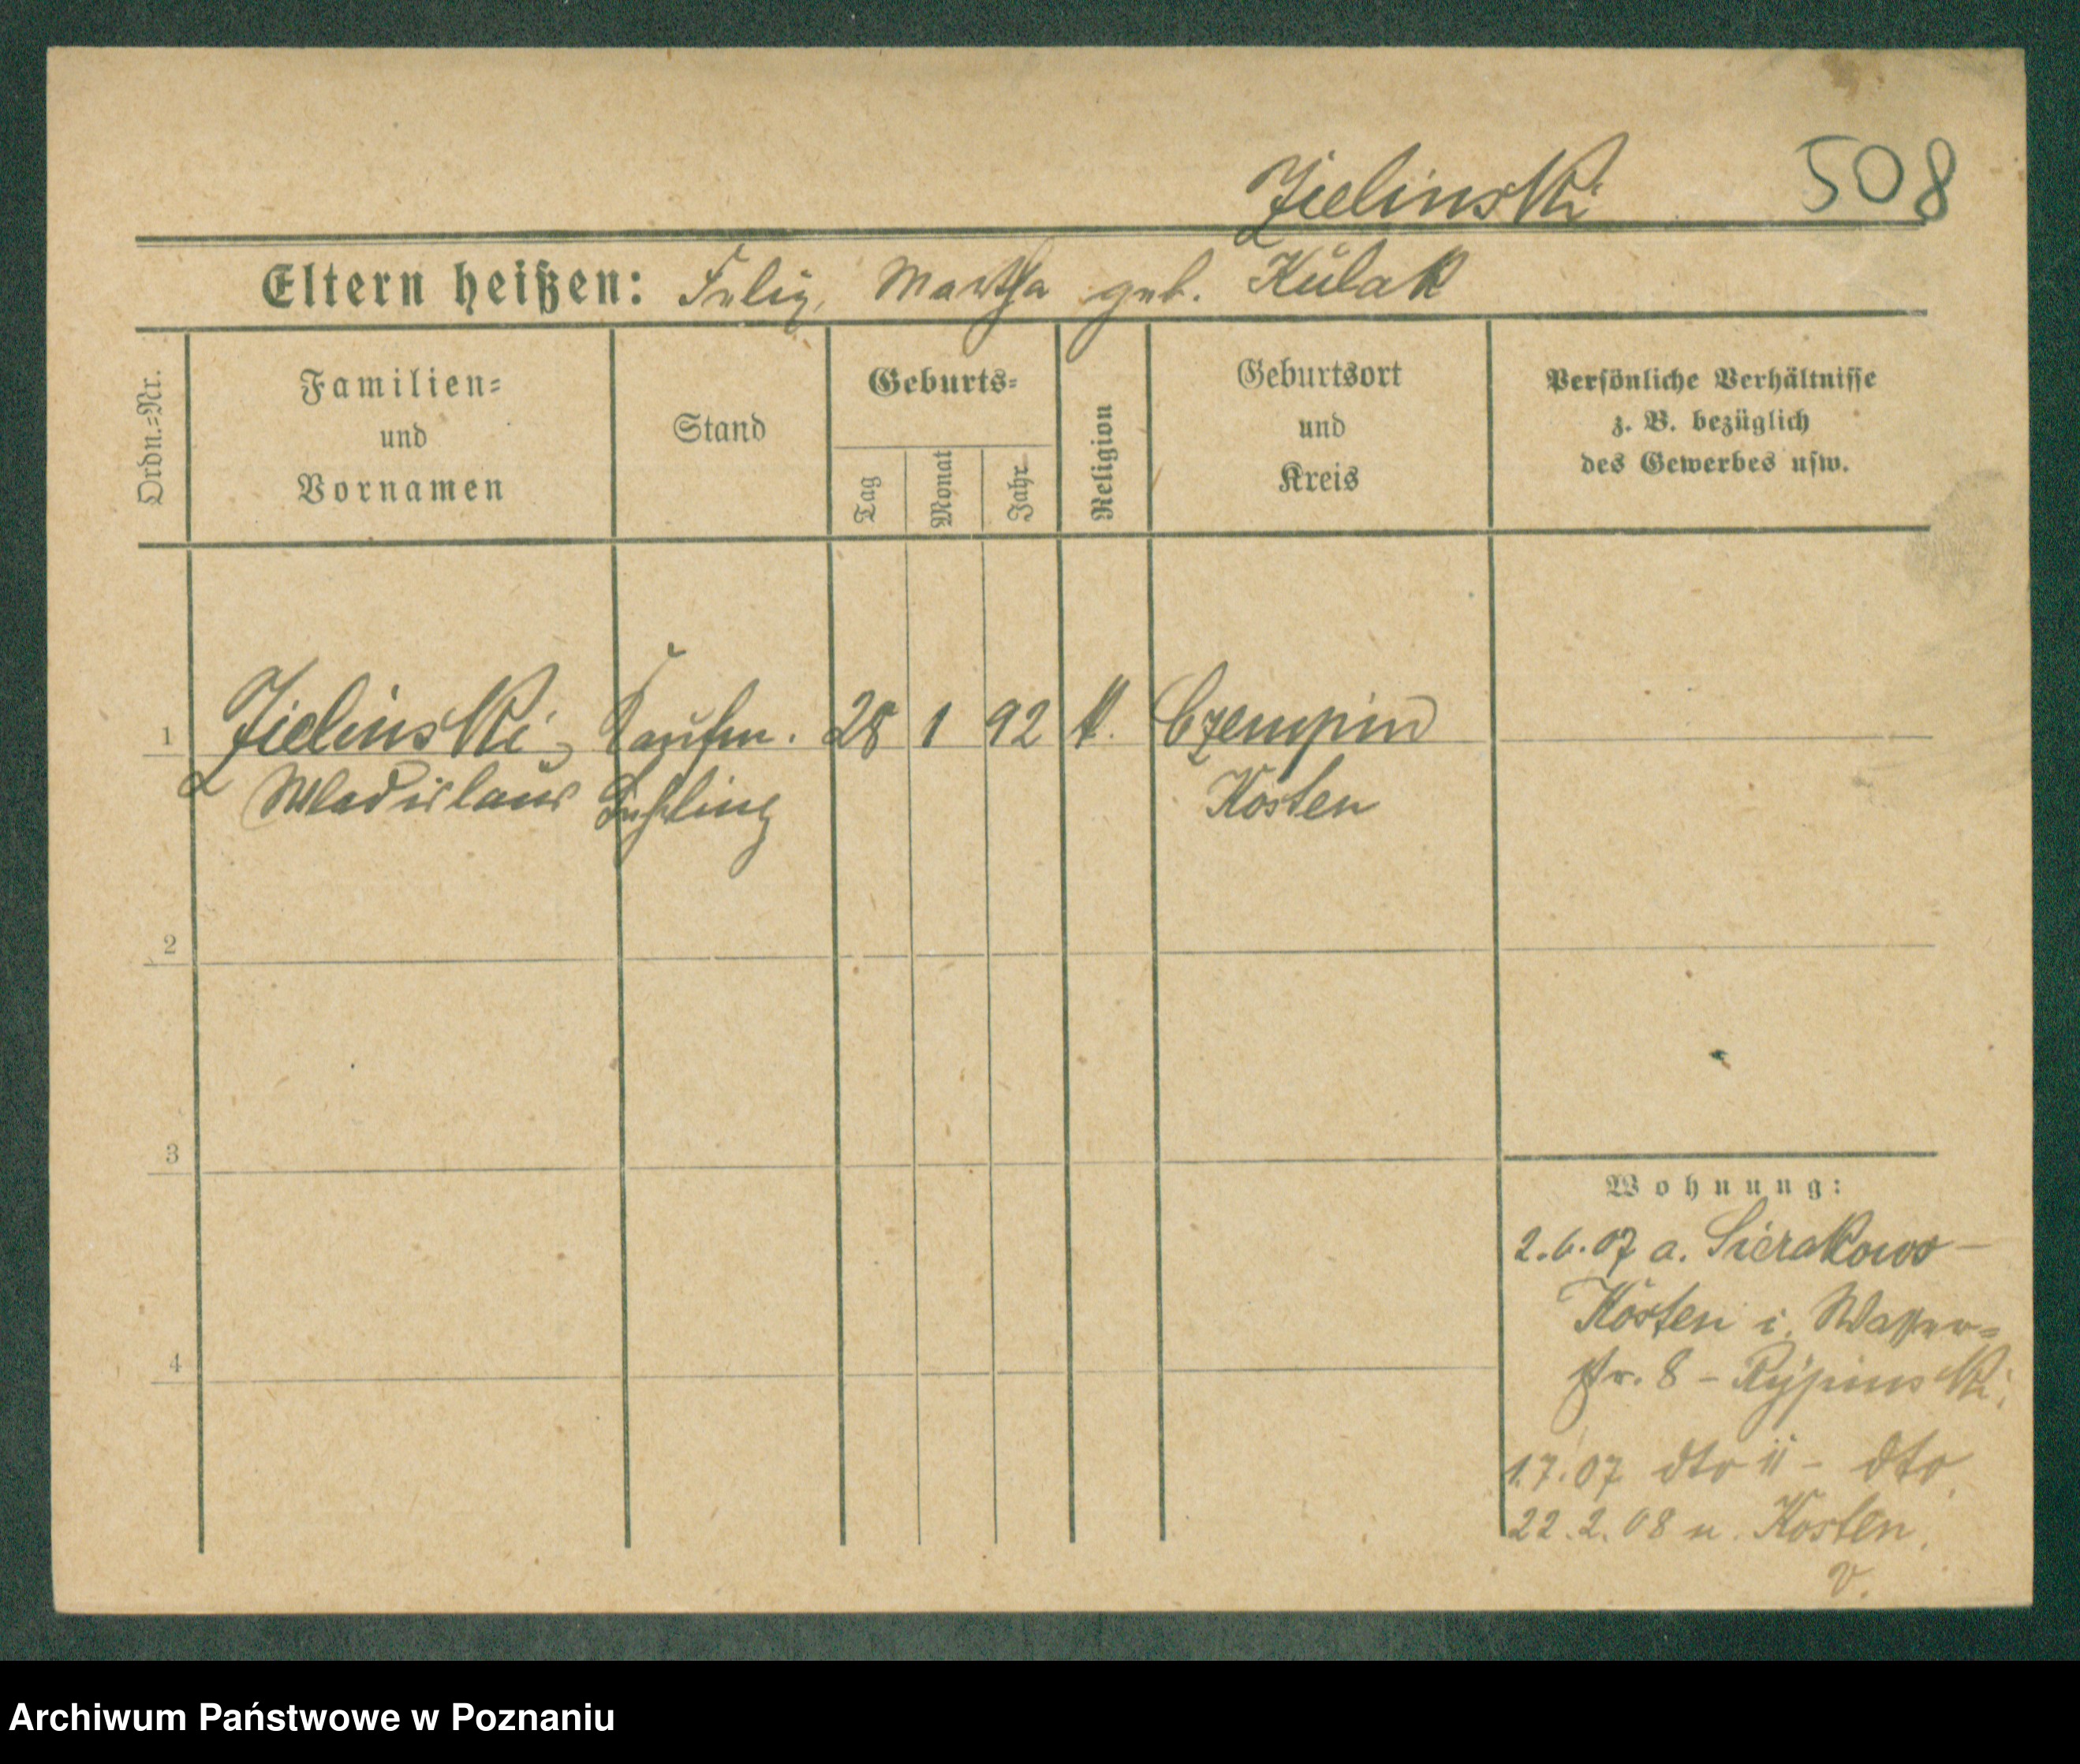 Zielinski 508
Eltern heißen: Felix, Martha geb. Kulak
Ordn.=Nr.
Familien=
und
Vornamen
Stand
Geburts=
Tag
Monat
Jahr
Religion
Geburtsort
und
Kreis
Persönliche Verhältnisse
z. B. bezüglich
des Gewerbes usw.
1 Zielinski, Kaufm. 28 1 92 k. Czempin
Wladislaus Lehrling Kosten
2
3
4
Wohnung:
2.6.07 a. Sierakowo –
Kosten i. Wasser=
str. 8 – Rypinski;
1.7.07 dto ii – dto.
22.2.08 n. Kosten.
v.
Archiwum Państwowe w Poznaniu